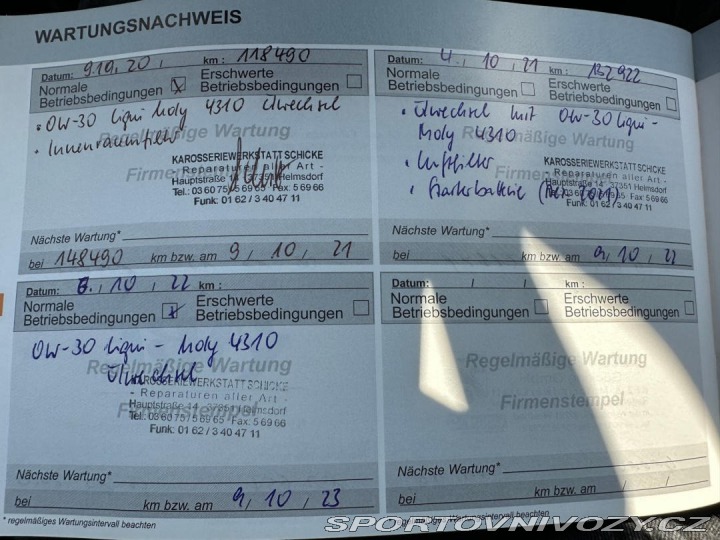 WARTUNGSNACHWEIS
Datum: 9.10, 20, km: 118490
Normale Betriebsbedingungen x Erschwerte Betriebsbedingungen
• 0W-30 Liqui Moly 4310 Ölwechsel
• Innenraumfilter
Regelmäßige Wartung
KAROSSERIEWERKSTATT SCHICKE
- Reparaturen aller Art -
Hauptstraße 14 · 37351 Helmsdorf
Tel.: 03 60 75/5 69 65 · Fax: 5 69 66
Funk: 01 62 / 3 40 47 11
Nächste Wartung*
bei 148490 km bzw. am 9, 10, 21
Datum: 4., 10, 21 km: 132922
Normale Betriebsbedingungen Erschwerte Betriebsbedingungen
• Ölwechsel mit 0W-30 Liqui-
Moly 4310
Regelmäßige Wartung
• Luftfilter
• Starterbatterie
KAROSSERIEWERKSTATT SCHICKE
- Reparaturen aller Art -
Hauptstraße 14 · 37351 Helmsdorf
Tel.: 03 60 75/5 69 65 · Fax: 5 69 66
Funk: 01 62 / 3 40 47 11
Nächste Wartung*
bei km bzw. am 9, 10, 22
Datum: , 10, 22 km:
Normale Betriebsbedingungen x Erschwerte Betriebsbedingungen
0W-30 Liqui-Moly 4310
Regelmäßige Wartung
Ölwechsel
KAROSSERIEWERKSTATT SCHICKE
- Reparaturen aller Art -
Hauptstraße 14 · 37351 Helmsdorf
Tel.: 03 60 75/5 69 65 Fax: 5 69 66
Funk: 01 62 / 3 40 47 11
Nächste Wartung*
bei km bzw. am 9, 10, 23
Datum: / / km:
Normale Betriebsbedingungen Erschwerte Betriebsbedingungen
Regelmäßige Wartung
Firmenstempel
Nächste Wartung*
bei km bzw. am / /
* regelmäßiges Wartungsintervall beachten
* regelmäßiges Wartungsintervall beachten
SPORTOVNIVOZY.CZ